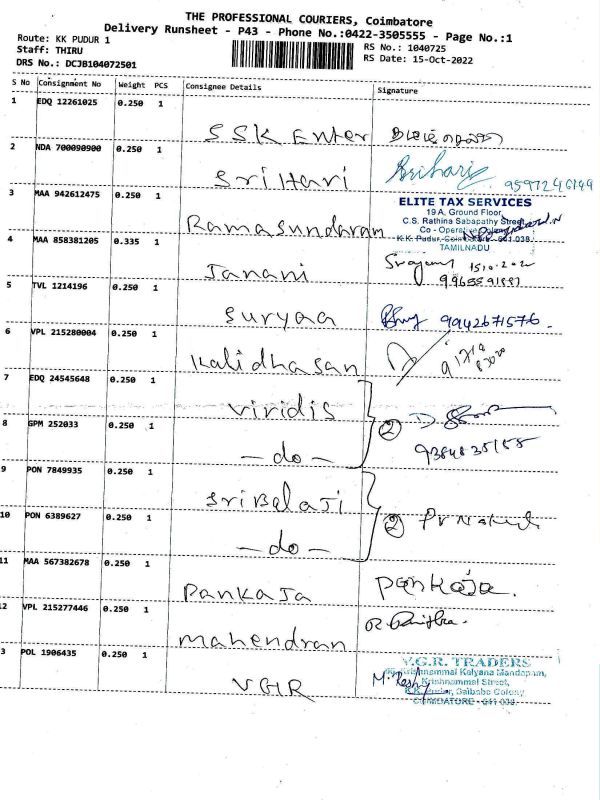 THE PROFESSIONAL COURIERS, Coimbatore
Delivery Runsheet - P43 - Phone No.:0422-3505555 - Page No.:1
Route: KK PUDUR 1
RS No.: 1040725
Staff: THIRU
RS Date: 15-Oct-2022
DRS No.: DCJB104072501
S No Consignment No Weight PCS Consignee Details Signature
1 EDQ 12261025 0.250 1
SSK Enter
2 NDA 700090900 0.250 1
Sri Hari
Srihari 9597246149
3 MAA 942612475 0.250 1
Ramasundaram
ELITE TAX SERVICES
19 A, Ground Floor,
C.S. Rathina Sabapathy Street
Co - Operative Colony
K.K. Pudur, Coimbatore - 641 038.
TAMILNADU
4 MAA 858381205 0.335 1
Janani
5 TVL 1214196 0.250 1
Suryaa
9942671576.
6 VPL 215280004 0.250 1
Kalidhasan
7 EDQ 24545648 0.250 1
Viridis
8 GPM 252033 0.250 1
- do -
2
9384835188
9 PON 7849935 0.250 1
Sri Balaji
10 PON 6389627 0.250 1
- do -
2
11 MAA 567382678 0.250 1
Pankaja
Pankaja.
12 VPL 215277446 0.250 1
Mahendran
3 POL 1906435 0.250 1
VGR
V.G.R. TRADERS
Krishnammal Kalyana Mandapam,
Krishnammal Street,
K.K. Pudur, Saibaba Colony
COIMBATORE - 641 038.